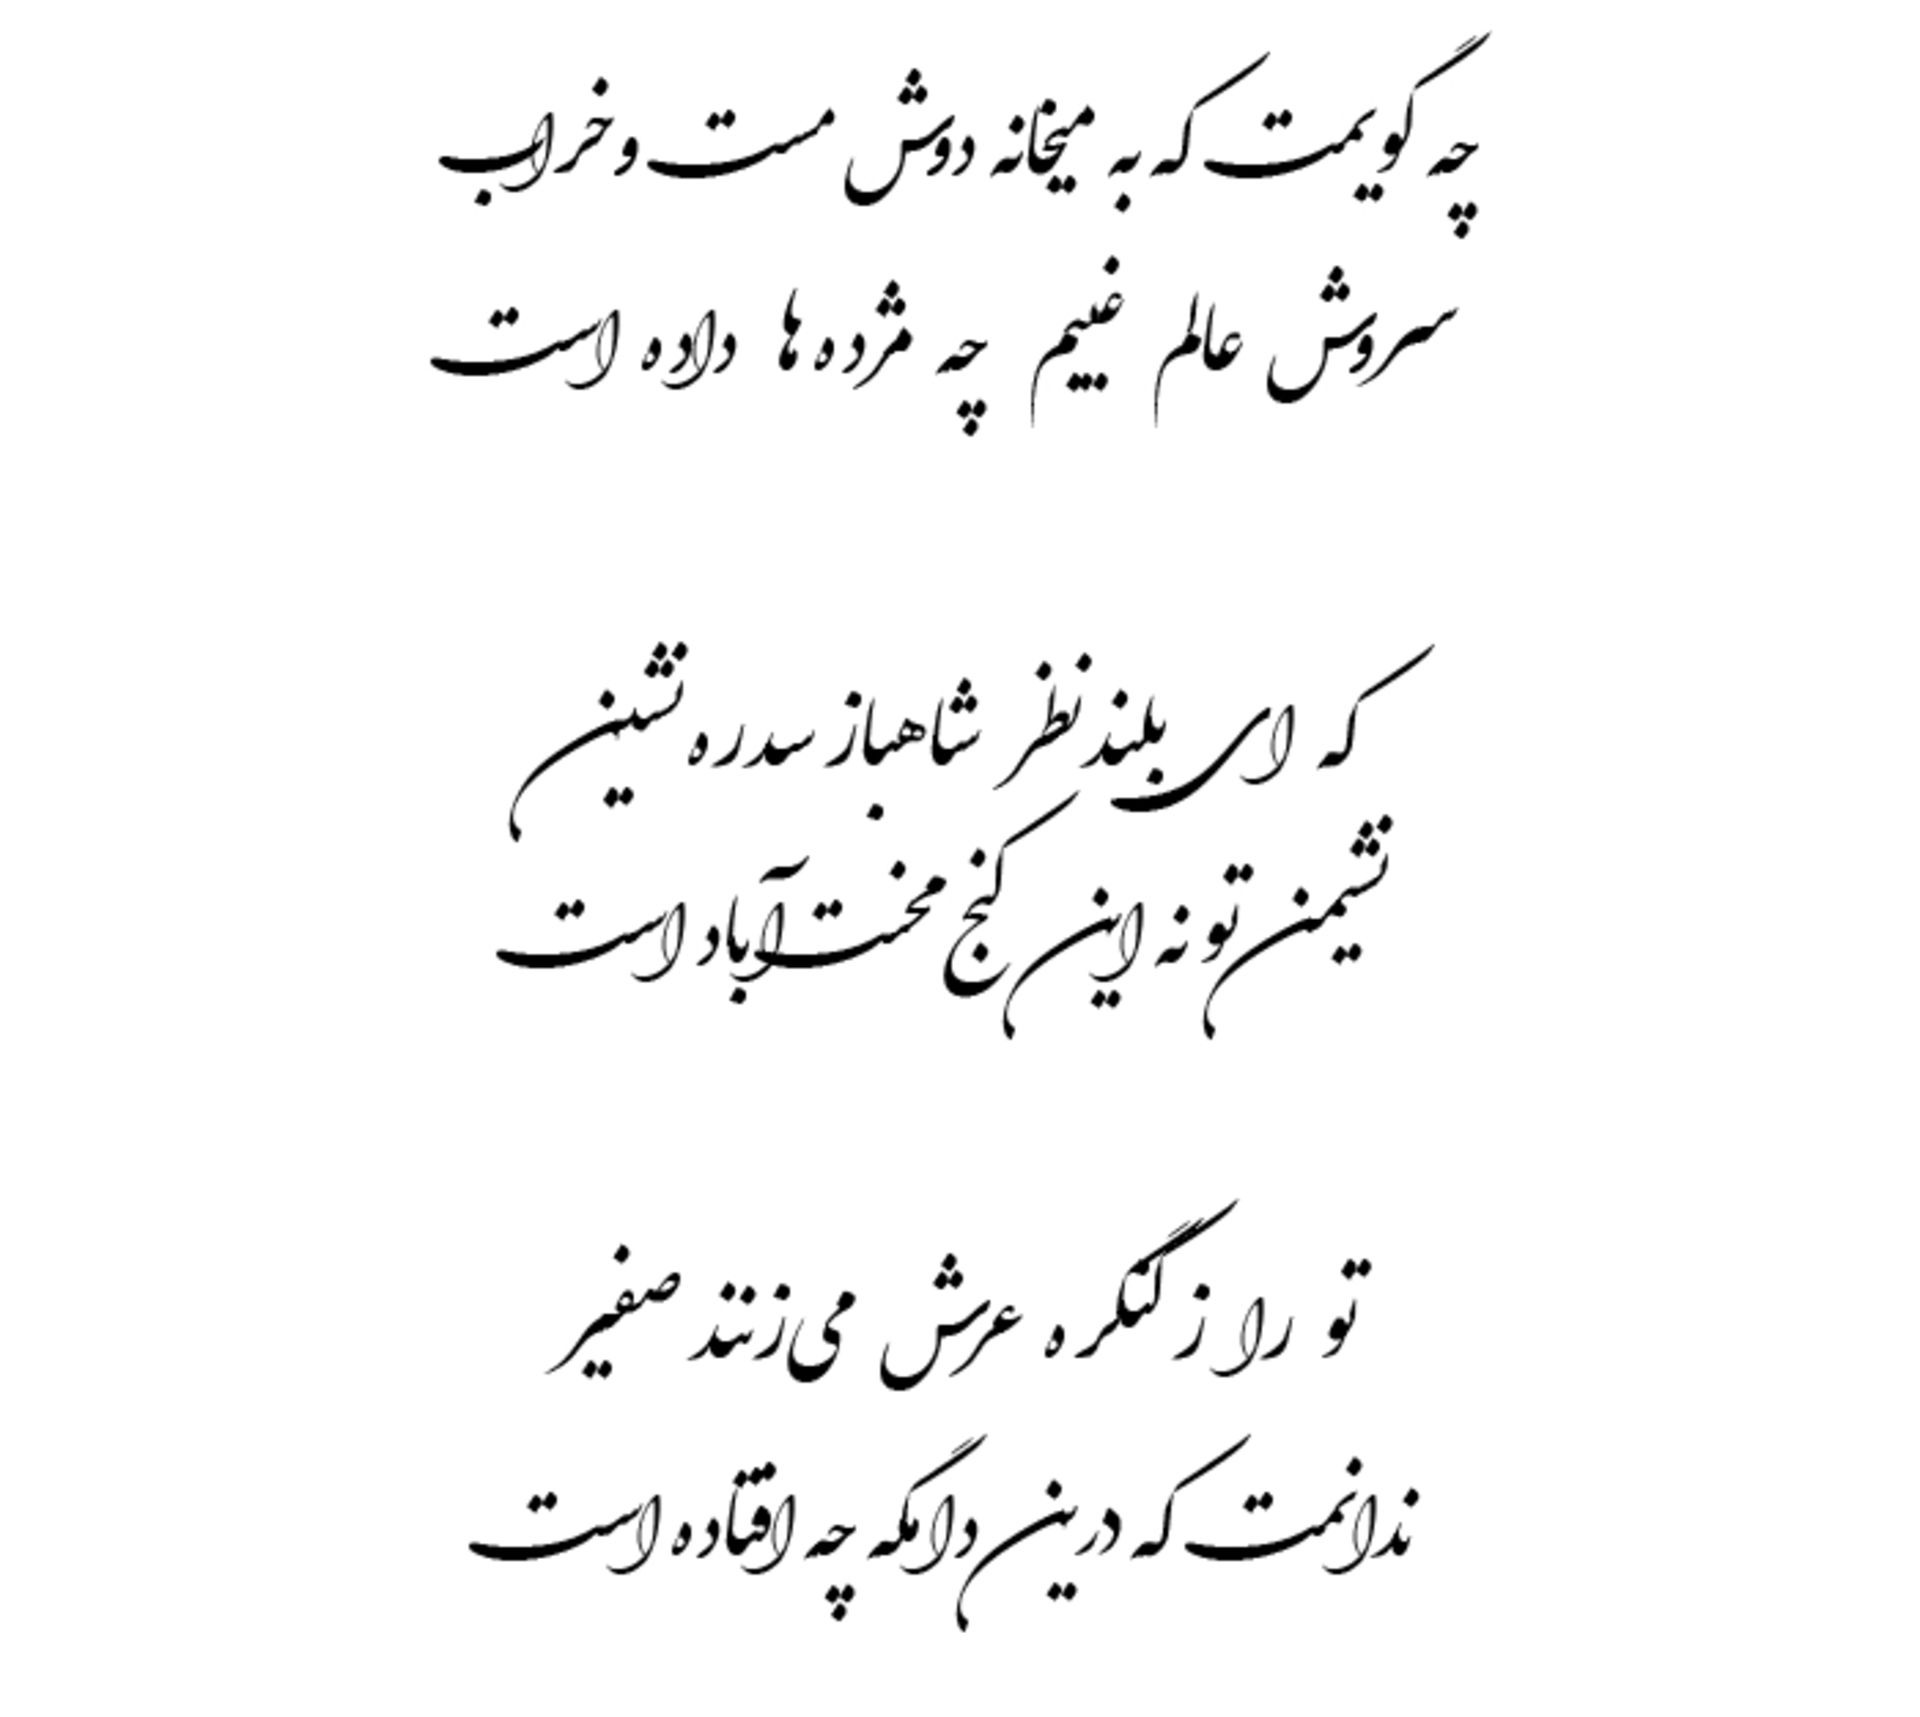 چه گویمت که به میخانه دوش مست و خراب
سروش عالم غیبیم چه مژده ها داده است
که ای بلند نظر شاهباز سدره نشین
نشیمن تو نه این کنج محنت آباد است
تو را ز کنگره عرش می‌زنند صفیر
ندانمت که درین دامگه چه افتاده است